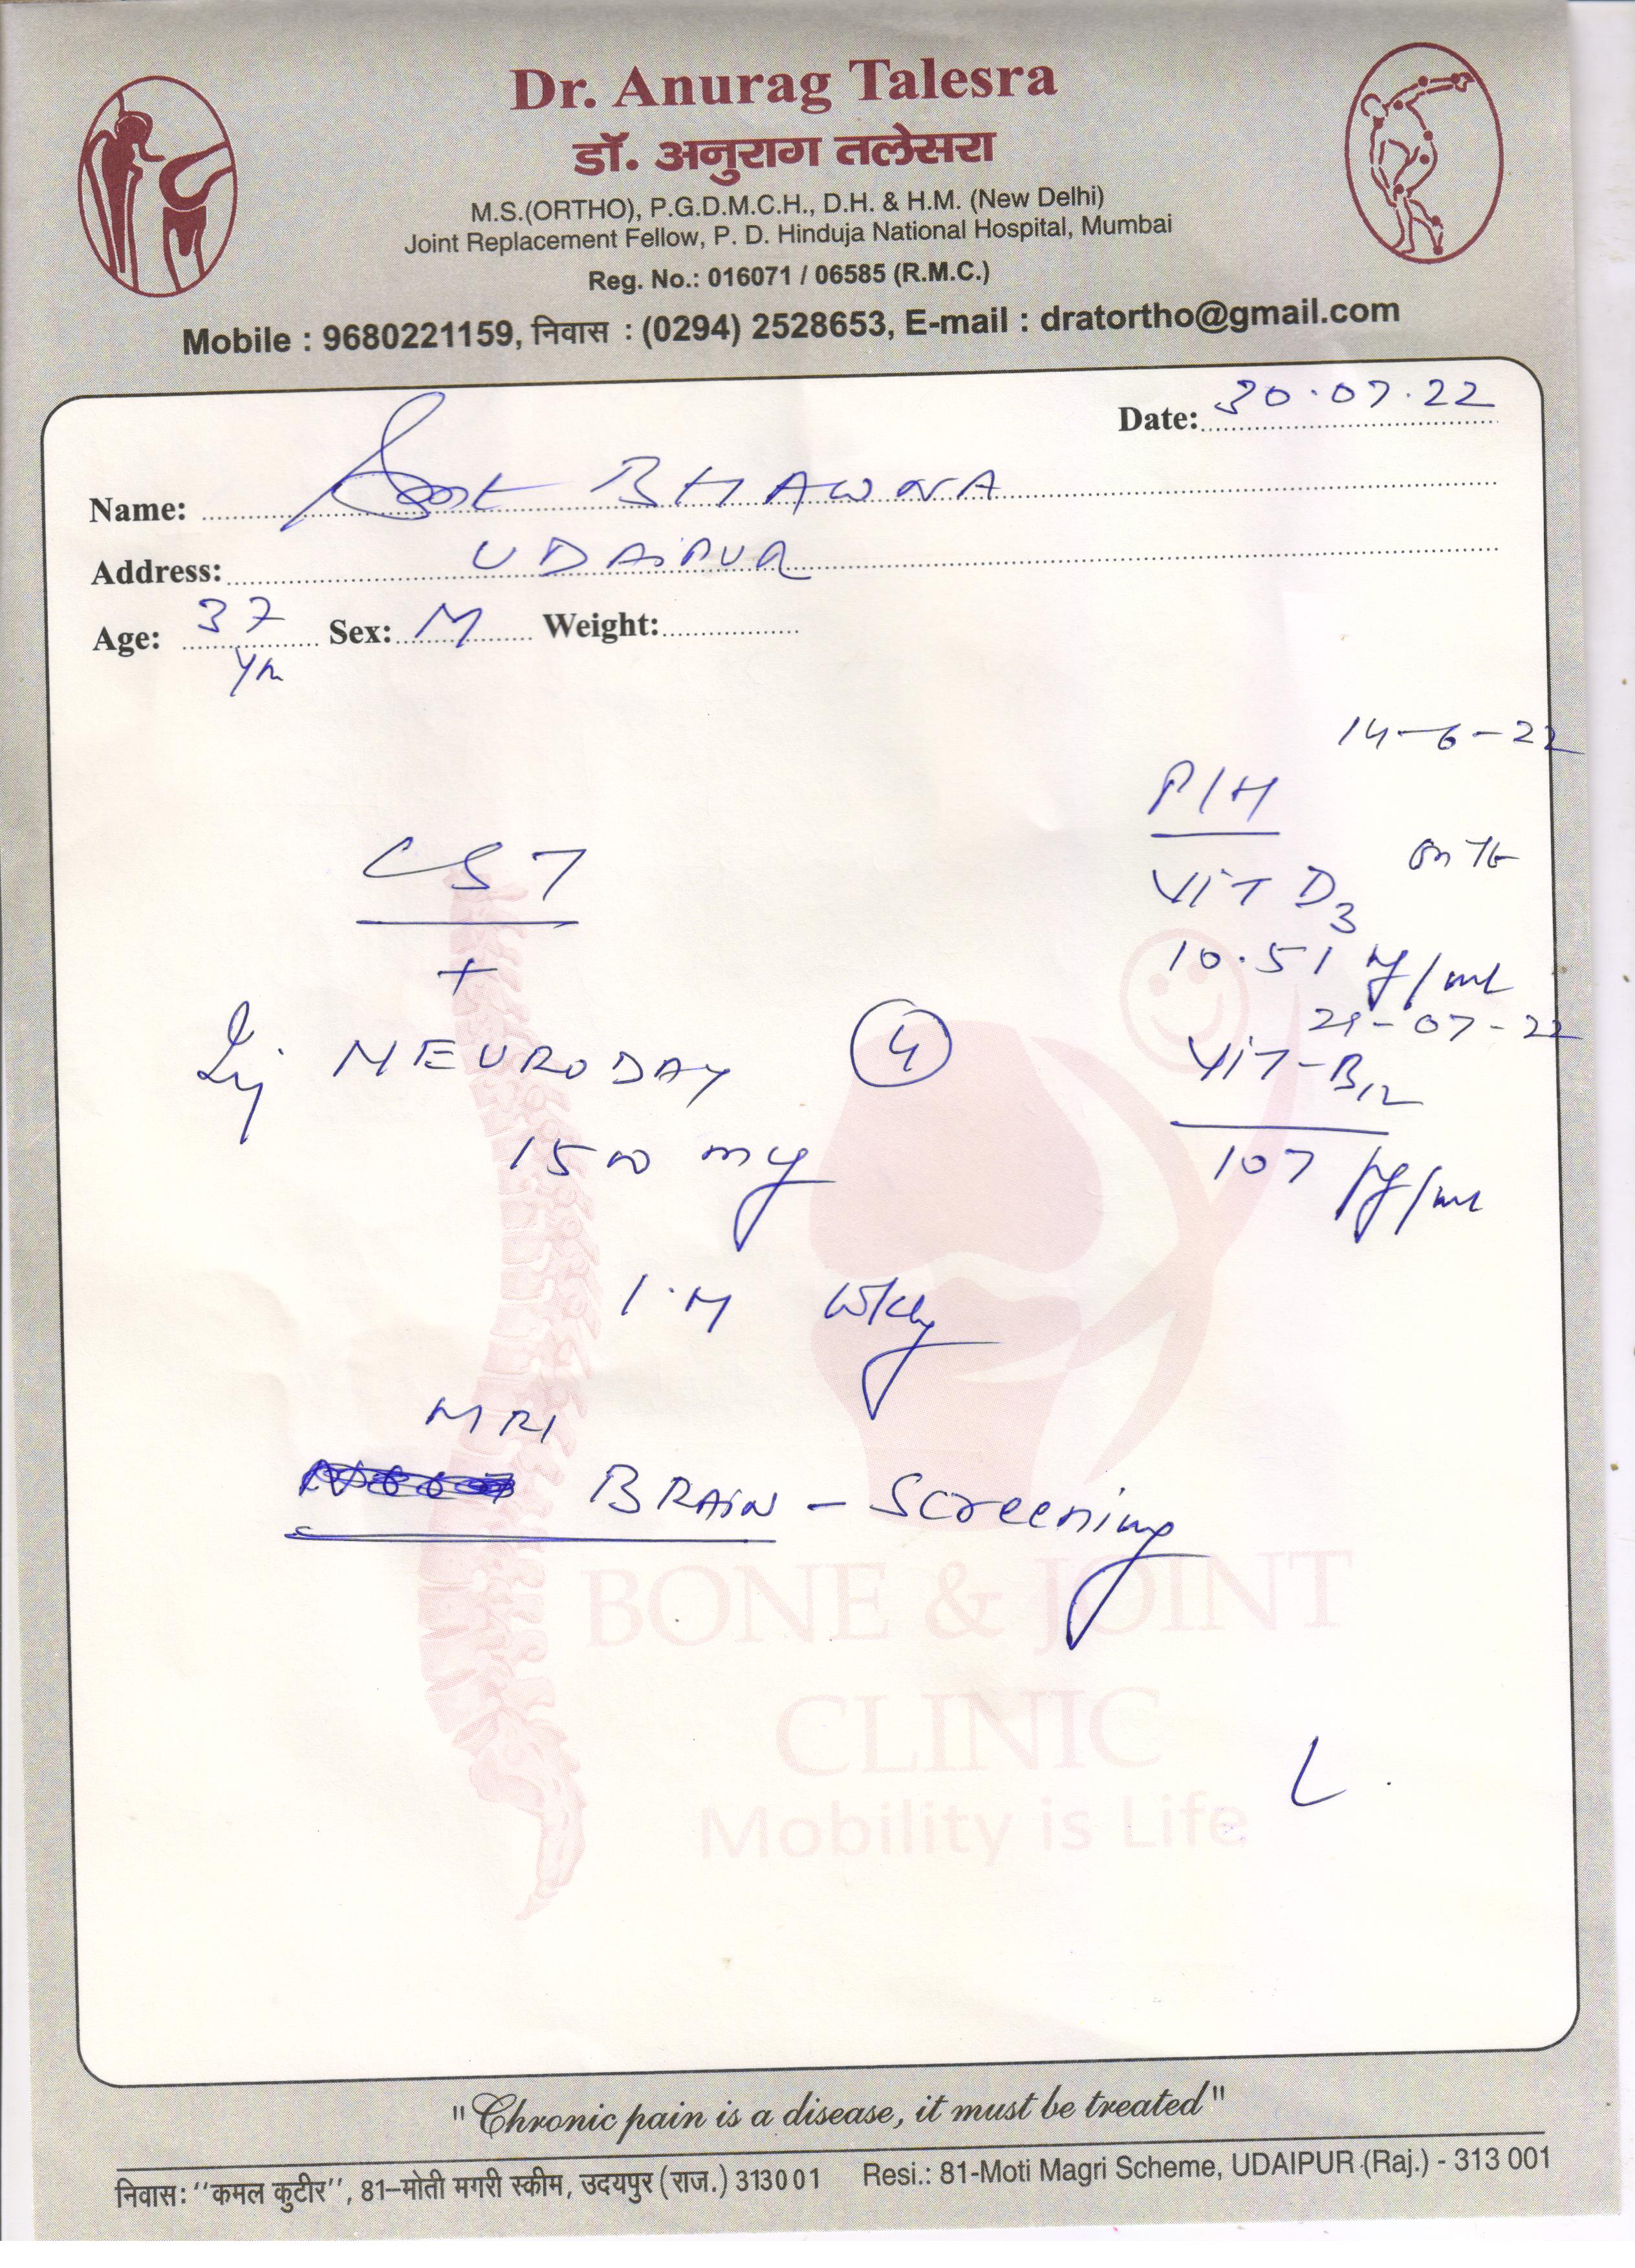 Dr. Anurag Talesra
डॉ. अनुराग तलेसरा
M.S.(ORTHO), P.G.D.M.C.H., D.H. & H.M. (New Delhi)
Joint Replacement Fellow, P. D. Hinduja National Hospital, Mumbai
Reg. No.: 016071 / 06585 (R.M.C.)
Mobile : 9680221159, निवास : (0294) 2528653, E-mail : dratortho@gmail.com
Date: 30.07.22
Name: BHAWNA
Address: UDAIPUR
Age: 37 Sex: M Weight:
yr
14-6-22
P/H
CST
on
VIT D3
10.51 ng/ml
+
29-07-22
Inj NEURODAY 4
VIT-B12
1500 mg
107 pg/ml
I.M Wkly
MRI
BRAIN - Screening
BONE & JOINT
CLINIC
Mobility is Life
"Chronic pain is a disease, it must be treated"
निवास: ''कमल कुटीर'', 81–मोती मगरी स्कीम, उदयपुर (राज.) 313001 Resi.: 81-Moti Magri Scheme, UDAIPUR (Raj.) - 313 001